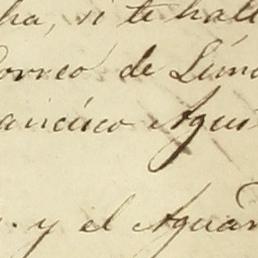 ha, si te hall
Correo de Lun
ancisco Agui
. y el Aguar